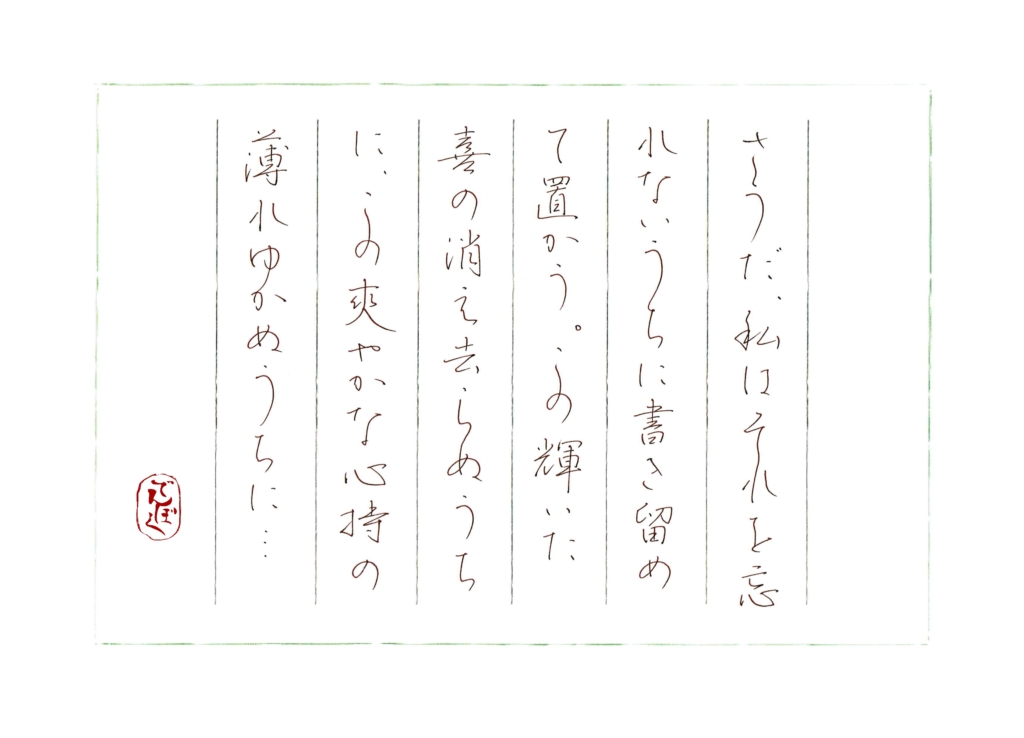 さうだ、私はそれを忘
れないうちに書き留め
て置かう。この輝いた
喜の消え去らぬうち
に、この爽やかな心持の
薄れゆかぬうちに…
でんぼく